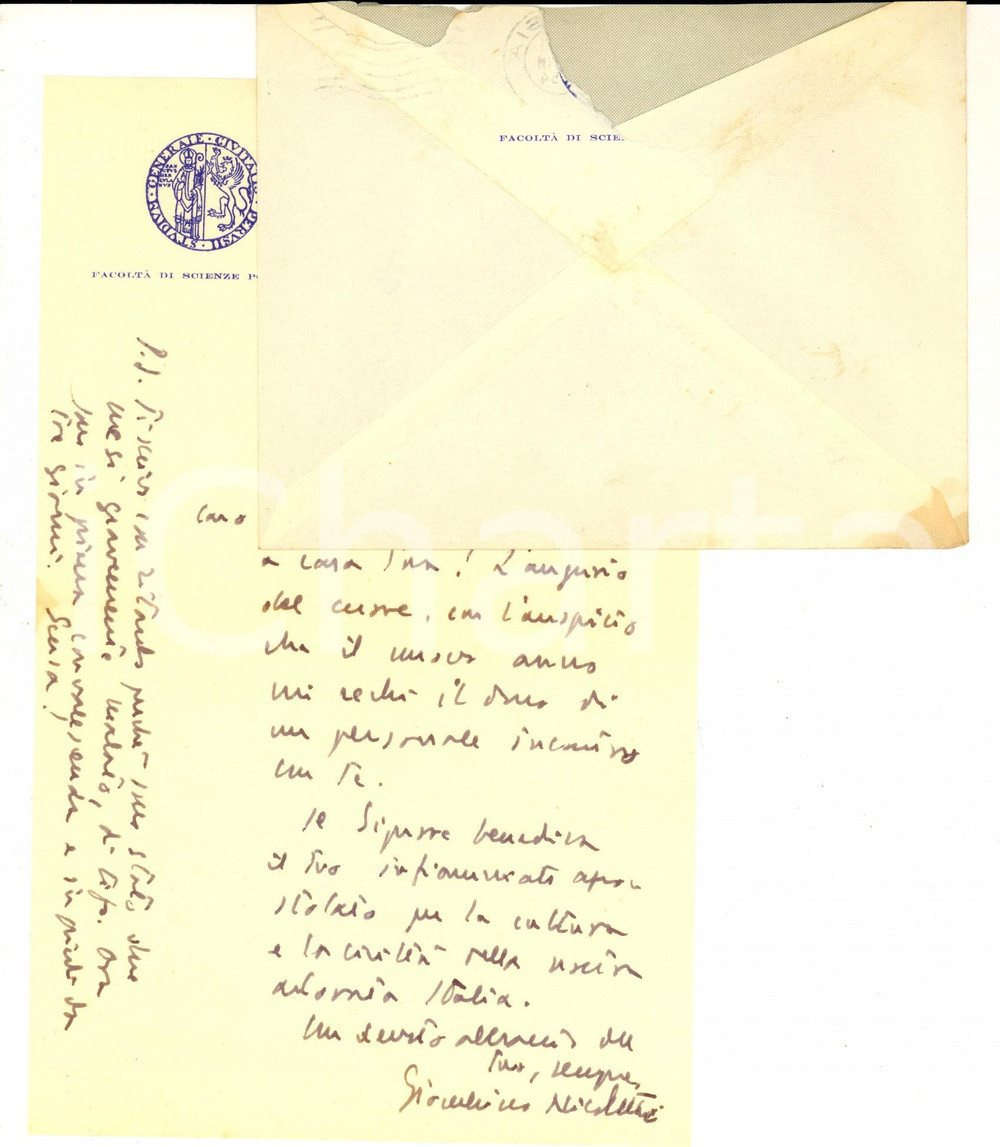 STVDIVM · GENERALE · CIVITA PERVSII
FACOLTÀ DI SCIENZE PO
FACOLTÀ DI SCIE
Caro
a casa Tua! L'augurio
del cuore, con l'auspicio
che il nuovo anno
mi rechi il dono di
un personale incontro
con Te.
Il Signore benedica
il Tuo infiammato apo-
stolato per la cultura
e la civiltà della nostra
adorata Italia.
Un devoto abbraccio del
Tuo, sempre,
Giombino Nicoletti
P.S. Ti scrivo con ritardo perché sono stato due
mesi gravemente malato, di tifo. Ora
sono in piena convalescenza e in piedi da
tre giorni. Scusa!
Charta